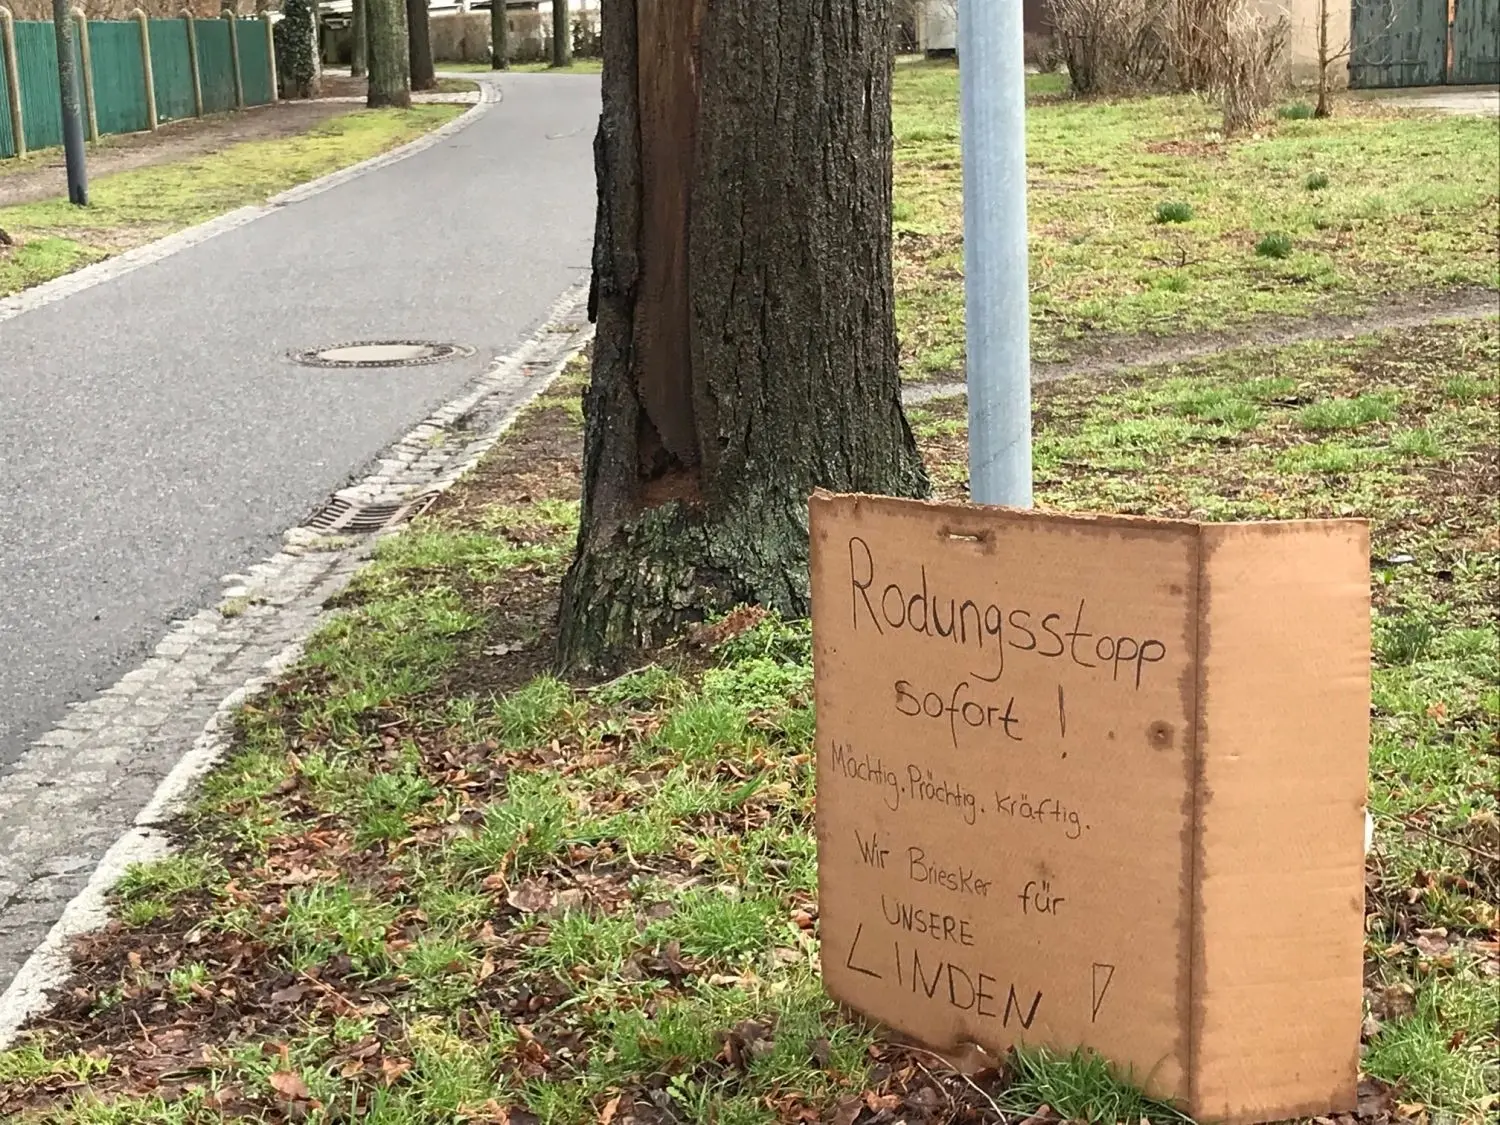 Rodungsstopp
sofort !
Mächtig. Prächtig. Kräftig.
Wir Briesker für
UNSERE
LINDEN !